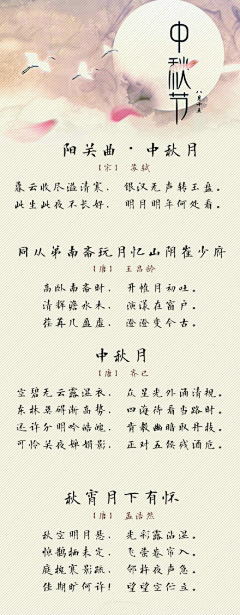 中秋节
八月十五
阳关曲·中秋月
【宋】 苏轼
暮云收尽溢清寒， 银汉无声转玉盘。
此生此夜不长好， 明月明年何处看。
同从弟南斋玩月忆山阴崔少府
【唐】 王昌龄
高卧南斋时， 开帷月初吐。
清辉澹水木， 演漾在窗户。
荏苒几盈虚， 澄澄变今古。
中秋月
【唐】 齐己
空碧无云露湿衣， 众星光外涌清规。
东林莫碍渐高势， 四海待看当路时。
还许分明吟皓魄， 肯教幽暗取丹枝。
可怜关夜婵娟影， 正对五侯残酒卮。
秋宵月下有怀
【唐】 孟浩然
秋空明月悬， 光彩露沾湿。
惊鹊栖未定， 飞萤卷帘入。
庭槐寒影疏， 邻杵夜声急。
佳期旷何许！ 望望空伫立。